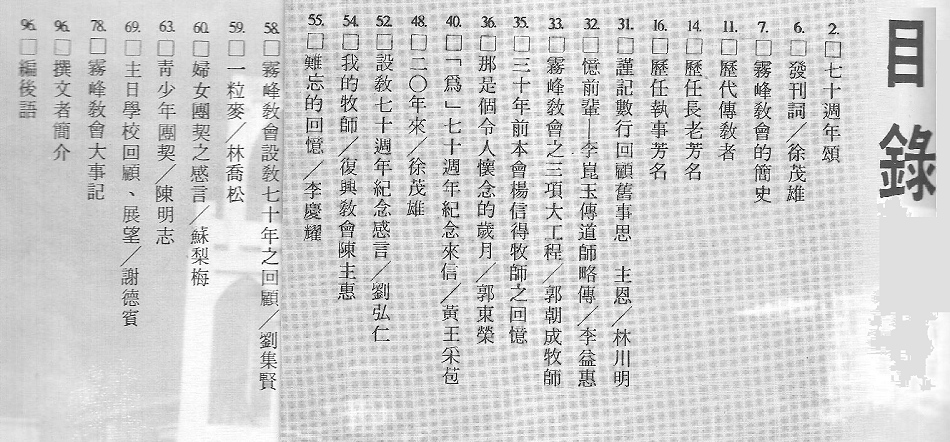 目錄
2.□七十週年頌
6.□發刊詞／徐茂雄
7.□霧峰教會的簡史
11.□歷代傳敎者
14.□歷任長老芳名
16.□歷任執事芳名
31.□謹記數行回顧舊事思　主恩／林川明
32.□憶前輩—李崑玉傳道師略傳／李益惠
33.□霧峰敎會之三項大工程／郭朝成牧師
35.□三十年前本會楊信得牧師之回憶
36.□那是個令人懷念的歲月／郭東榮
40.□「爲」七十週年紀念來信／黃王采苞
48.□二〇年來／徐茂雄
52.□設敎七十週年紀念感言／劉弘仁
54.□我的牧師／復興敎會陳主惠
55.□難忘的回憶／李慶耀
58.□霧峰敎會設敎七十年之回顧／劉集賢
59.□一粒麥／林喬松
60.□婦女團契之感言／蘇梨梅
63.□靑少年團契／陳明志
69.□主日學校回顧、展望／謝德賓
78.□霧峰敎會大事記
96.□撰文者簡介
96.□編後語